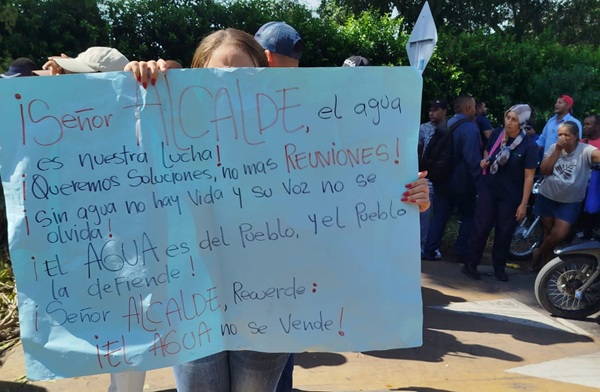 ¡Señor ALCALDE, el agua
es nuestra lucha!
¡Queremos Soluciones, no mas REUNIONES!
¡Sin agua no hay Vida y su Voz no se
olvida!
¡EL AGUA es del Pueblo, y el Pueblo
la defiende!
¡Señor ALCALDE, Recuerde:
¡EL AGUA no se Vende!